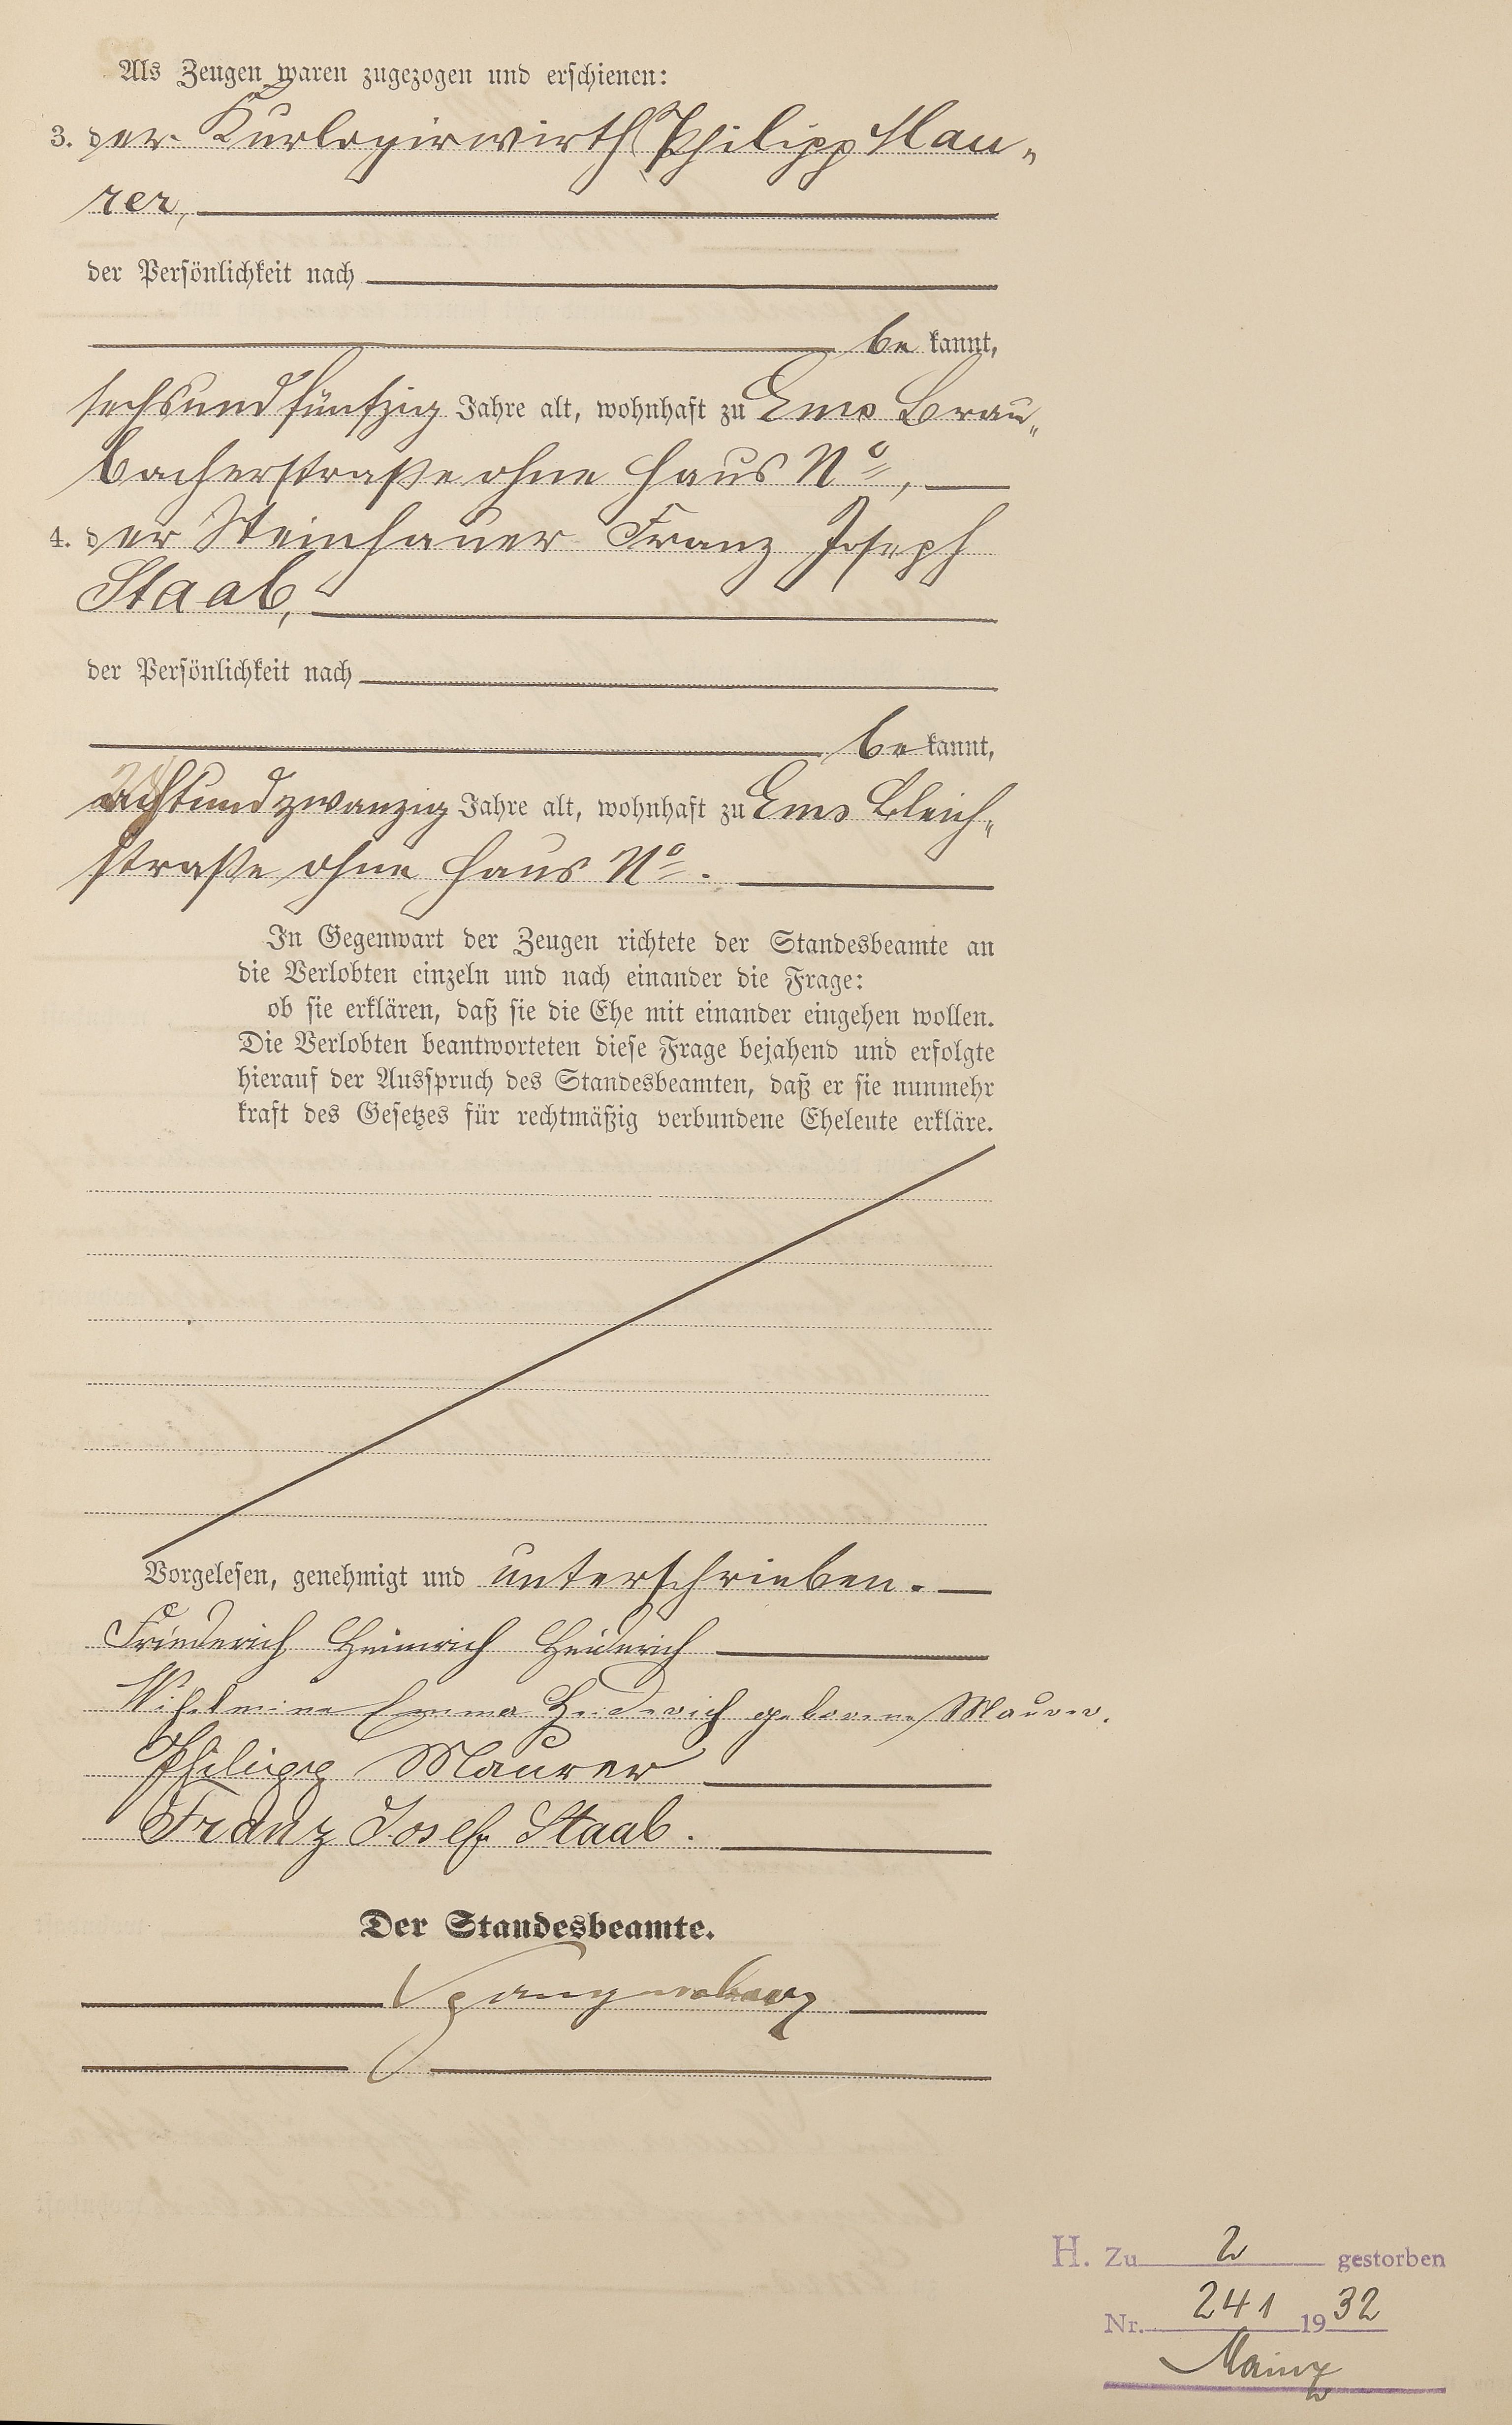 Als Zeugen waren zugezogen und erschienen:
3. der Kurlogirwirth Philipp Mau-
rer,
der Persönlichkeit nach
be kannt,
sechsundfünfzig Jahre alt, wohnhaft zu Ems Brau-
bacherstraße ohne Haus No,
4. der Steinhauer Franz Joseph
Staab,
der Persönlichkeit nach
be kannt,
achtundzwanzig Jahre alt, wohnhaft zu Ems Bleich-
straße ohne Haus No.
In Gegenwart der Zeugen richtete der Standesbeamte an
die Verlobten einzeln und nach einander die Frage:
ob sie erklären, daß sie die Ehe mit einander eingehen wollen.
Die Verlobten beantworteten diese Frage bejahend und erfolgte
hierauf der Ausspruch des Standesbeamten, daß er sie nunmehr
kraft des Gesetzes für rechtmäßig verbundene Eheleute erkläre.
Vorgelesen, genehmigt und unterschrieben.
Friederich Heinrich Heiderich
Wilhelmine Emma Heiderich geborene Maurer.
Philipp Maurer
Franz Josef Staab.
Der Standesbeamte.
Spangenberg
H. Zu 2 gestorben
Nr. 241 1932
Mainz